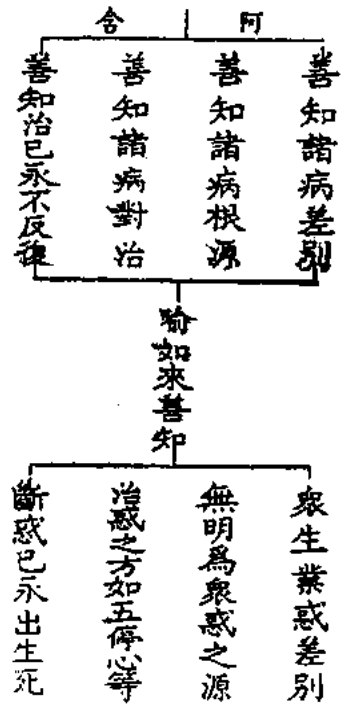 阿含
善知諸病差別
善知諸病根源
善知諸病對治
善知治已永不反復
喻如來善知
眾生業惑差別
無明為眾惑之源
治惑之方如五停心等
斷惑已永出生死